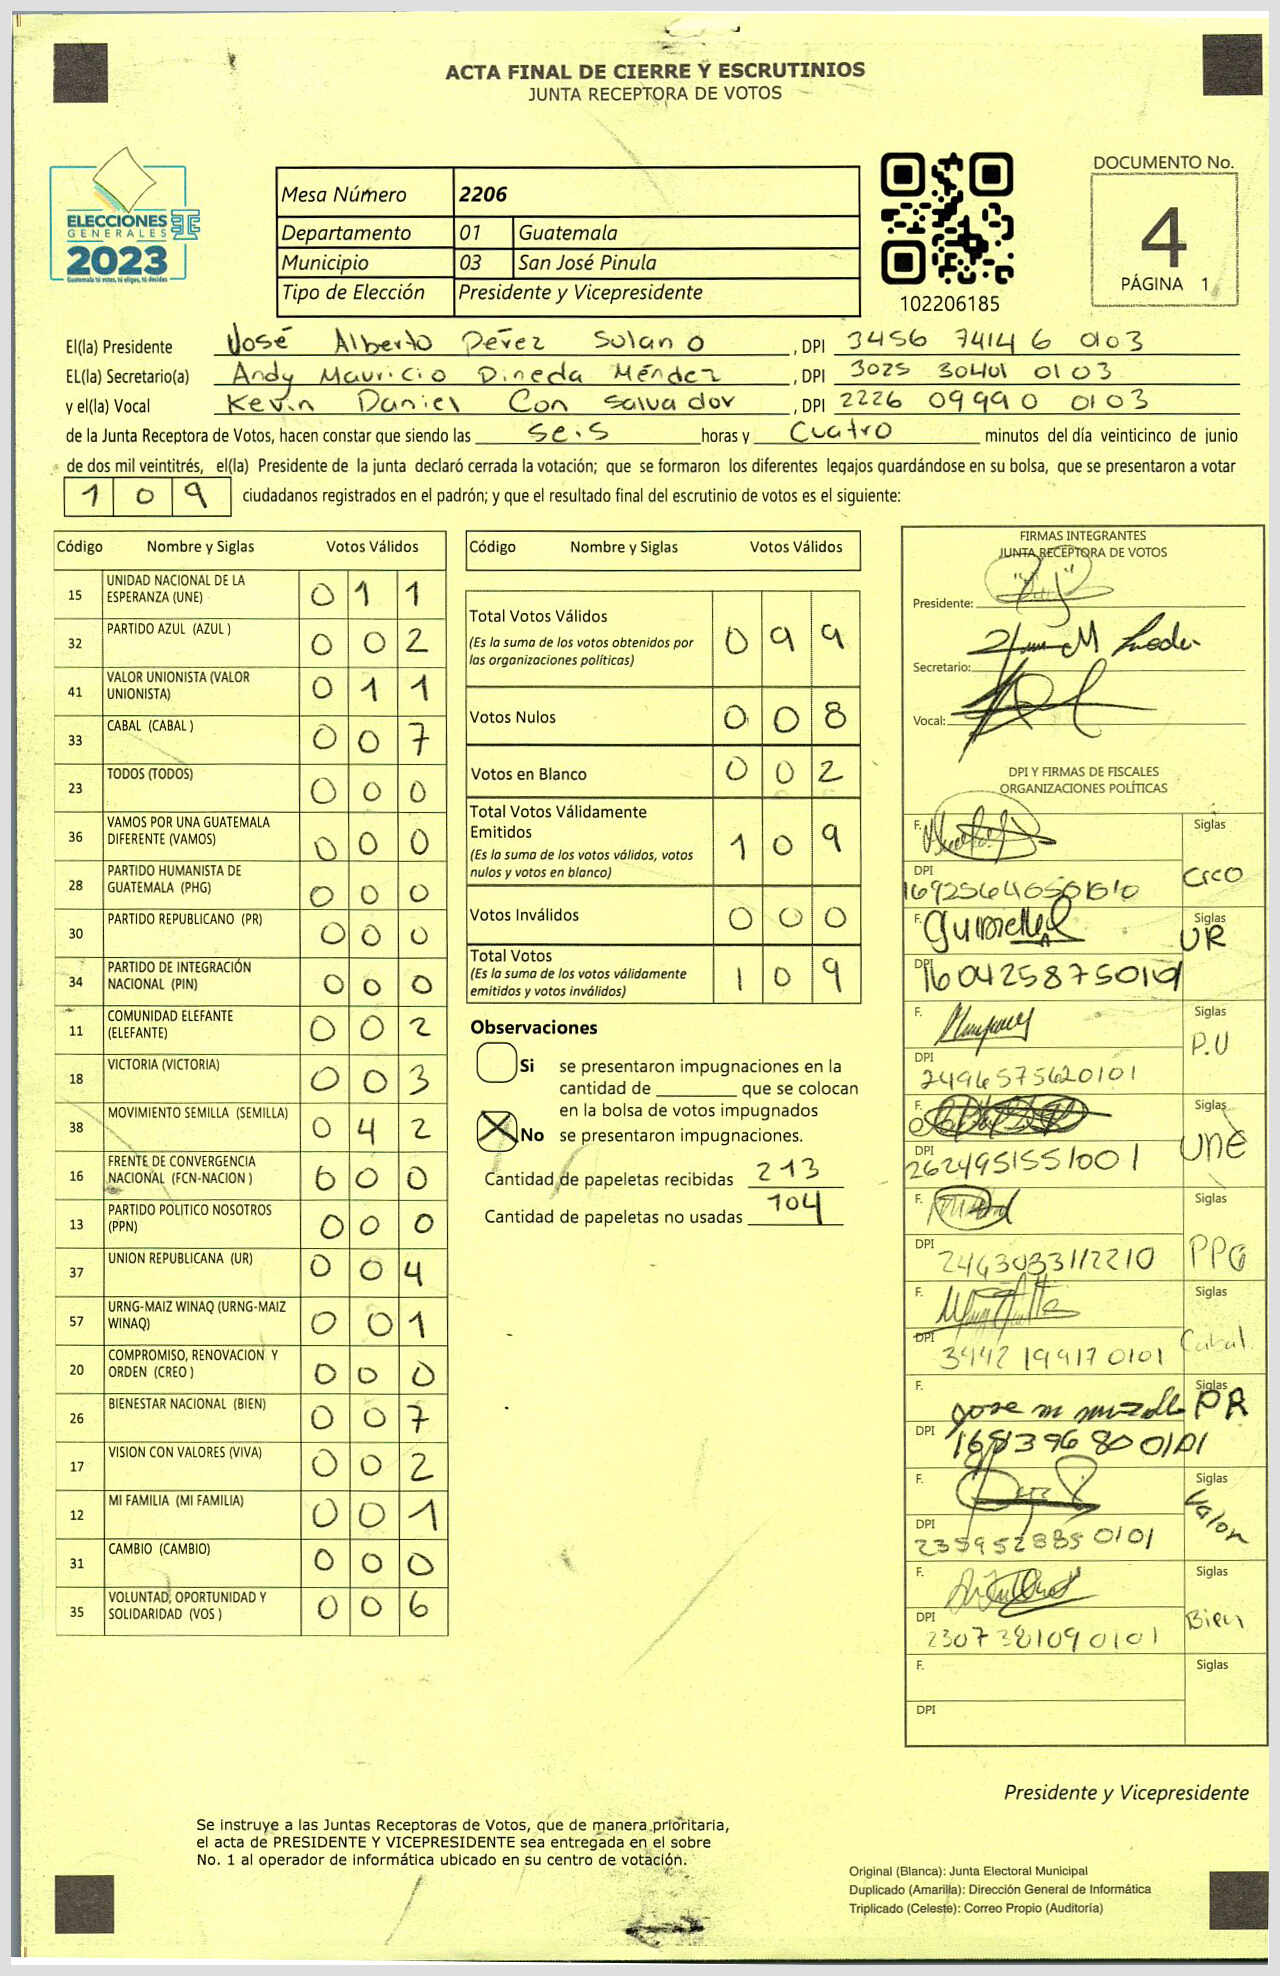 ACTA FINAL DE CIERRE Y ESCRUTINIOS
JUNTA RECEPTORA DE VOTOS
ELECCIONES
GENERALES
2023
Guatemala tú votas, tú eliges, tú decides
Mesa Número 2206
Departamento 01 Guatemala
Municipio 03 San José Pinula
Tipo de Elección Presidente y Vicepresidente
102206185
DOCUMENTO No.
4
PÁGINA 1
El(la) Presidente José Alberto Pérez Solano , DPI 3456 74146 0103
EL(la) Secretario(a) Andy Mauricio Pineda Méndez , DPI 3025 30401 0103
y el(la) Vocal Kevin Daniel Con Salvador , DPI 2226 09990 0103
de la Junta Receptora de Votos, hacen constar que siendo las seis horas y cuatro minutos del día veinticinco de junio
de dos mil veintitrés, el(la) Presidente de la junta declaró cerrada la votación; que se formaron los diferentes legajos guardándose en su bolsa, que se presentaron a votar
109 ciudadanos registrados en el padrón; y que el resultado final del escrutinio de votos es el siguiente:
Código Nombre y Siglas Votos Válidos
15 UNIDAD NACIONAL DE LA ESPERANZA (UNE) 011
32 PARTIDO AZUL (AZUL ) 002
41 VALOR UNIONISTA (VALOR UNIONISTA) 011
33 CABAL (CABAL ) 007
23 TODOS (TODOS) 000
36 VAMOS POR UNA GUATEMALA DIFERENTE (VAMOS) 000
28 PARTIDO HUMANISTA DE GUATEMALA (PHG) 000
30 PARTIDO REPUBLICANO (PR) 000
34 PARTIDO DE INTEGRACIÓN NACIONAL (PIN) 000
11 COMUNIDAD ELEFANTE (ELEFANTE) 002
18 VICTORIA (VICTORIA) 003
38 MOVIMIENTO SEMILLA (SEMILLA) 042
16 FRENTE DE CONVERGENCIA NACIONAL (FCN-NACION ) 000
13 PARTIDO POLITICO NOSOTROS (PPN) 000
37 UNION REPUBLICANA (UR) 004
57 URNG-MAIZ WINAQ (URNG-MAIZ WINAQ) 001
20 COMPROMISO, RENOVACION Y ORDEN (CREO ) 000
26 BIENESTAR NACIONAL (BIEN) 007
17 VISION CON VALORES (VIVA) 002
12 MI FAMILIA (MI FAMILIA) 001
31 CAMBIO (CAMBIO) 000
35 VOLUNTAD, OPORTUNIDAD Y SOLIDARIDAD (VOS ) 006
Código Nombre y Siglas Votos Válidos
Total Votos Válidos 099
(Es la suma de los votos obtenidos por las organizaciones políticas)
Votos Nulos 008
Votos en Blanco 002
Total Votos Válidamente Emitidos 109
(Es la suma de los votos válidos, votos nulos y votos en blanco)
Votos Inválidos 000
Total Votos 109
(Es la suma de los votos válidamente emitidos y votos inválidos)
Observaciones
Si se presentaron impugnaciones en la
cantidad de ________ que se colocan
en la bolsa de votos impugnados
No se presentaron impugnaciones.
Cantidad de papeletas recibidas 213
Cantidad de papeletas no usadas 104
FIRMAS INTEGRANTES
JUNTA RECEPTORA DE VOTOS
Presidente:
Secretario:
Vocal:
DPI Y FIRMAS DE FISCALES
ORGANIZACIONES POLÍTICAS
F. Siglas
DPI
F. Siglas UR
DPI 1604258750101
F. Siglas P.U
DPI 2496575620101
F. Siglas UNE
DPI 2624951551001
F. Siglas PPG
DPI 2463033112210
F. Siglas Cabal
DPI 3442 19917 0101
F. Siglas PR
DPI
F. Siglas Valor
DPI
F. Siglas Bien
DPI 2307381090101
F. Siglas
DPI
Presidente y Vicepresidente
Se instruye a las Juntas Receptoras de Votos, que de manera prioritaria,
el acta de PRESIDENTE Y VICEPRESIDENTE sea entregada en el sobre
No. 1 al operador de informática ubicado en su centro de votación.
Original (Blanca): Junta Electoral Municipal
Duplicado (Amarilla): Dirección General de Informática
Triplicado (Celeste): Correo Propio (Auditoría)